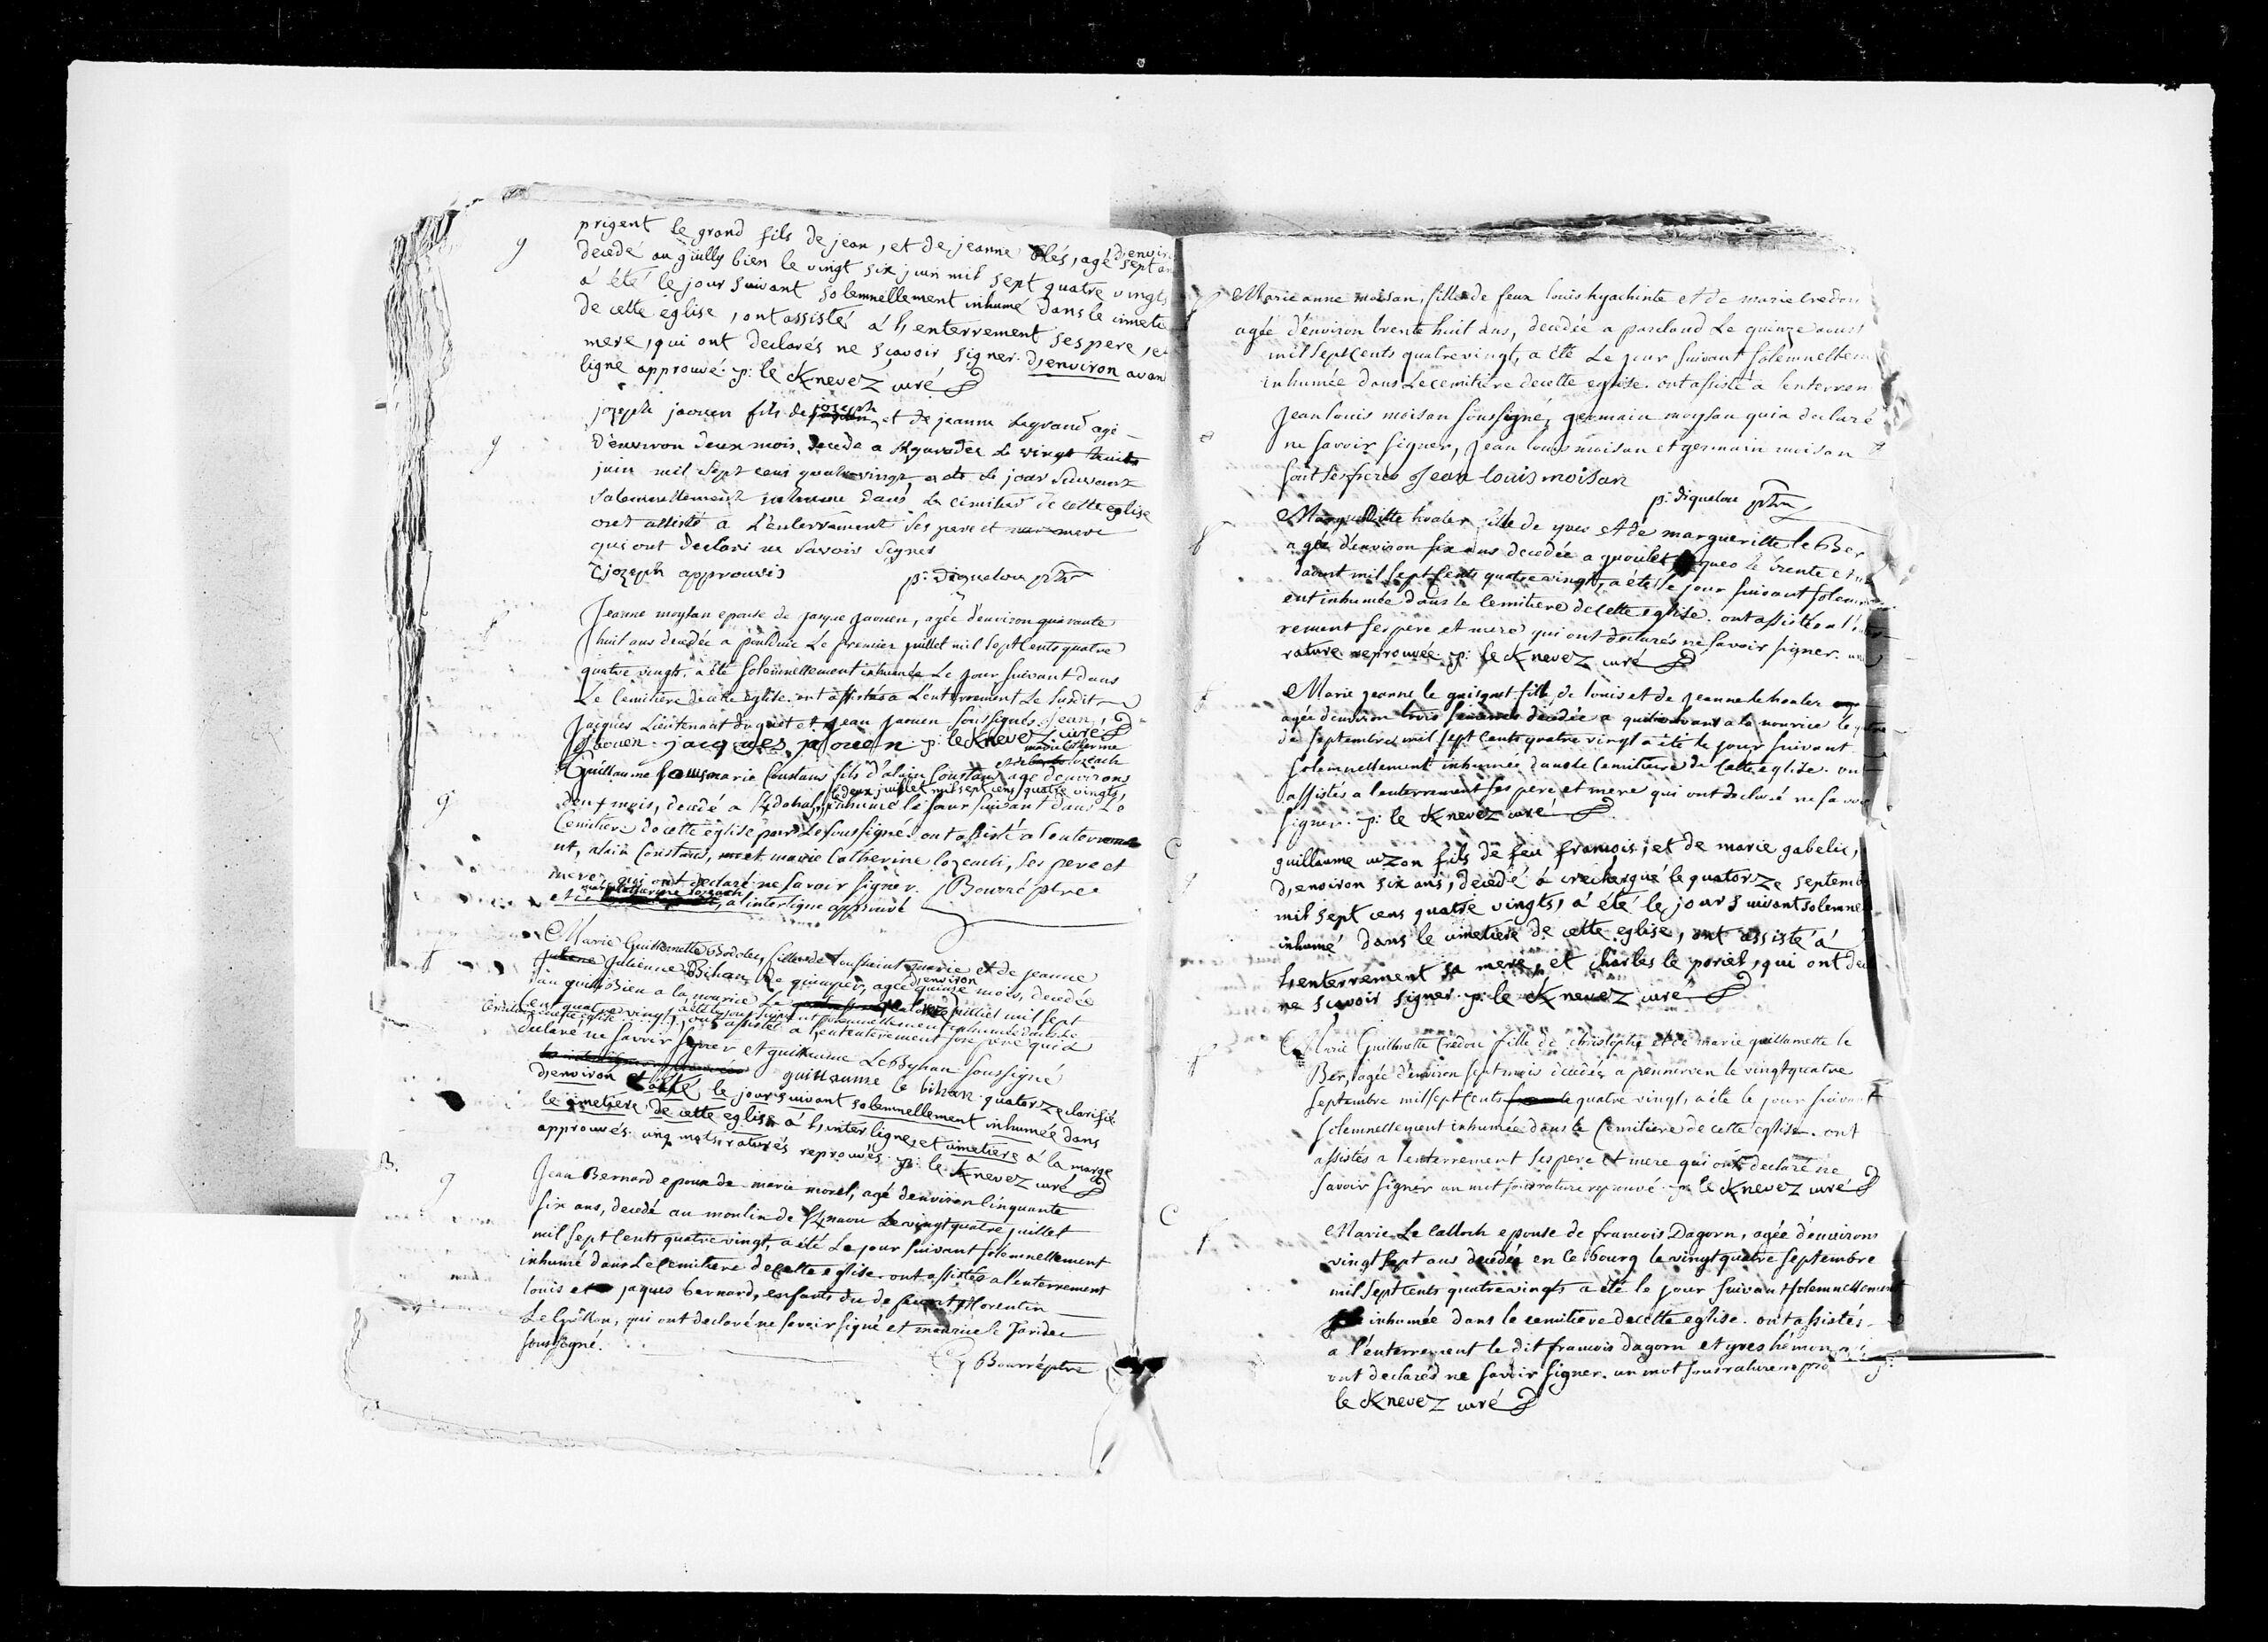 g
prigent le grand fils de jean, et de jeanne blés, agé d'environ
decedé au guilly bien le vingt six juin mil sept quatre vingts
à été le jour suivant solemnellement inhumé dans le cimete
de cette eglise, ont assisté à l'enterrement ses pere, et
mere, qui ont declarés ne sçavoir signer. d'environ avan
ligne approuvé. p: le Knevez curé
g
jozeph jaouen fils de joseph et de jeanne Legrand agé
D'environ deux mois, decede a Le vingt huit
juin mil Sept cens quatrevingt, a ete Le jour Suivant
Solemnellement inhume dans Le cimitier de cette eglise
ont assisté a L'enterrement Ses pere et mere
qui ont declaré ne Savoir Signer
jozeph approuvé p: diquelou ptre
f
Jeanne moysan epouse de jacque jaouen, agée d'environ quarante
huit ans decedée a Le premier juillet mil sept Cents quatre
quatre vingts, a été Solemnellement inhumée Le jour suivant dans
Le Cemitiere de cette Eglise. ont assistés a L'enterrement Le Susdit
Jacques Lieutenant du guet et jean jaouen soussignés. jean
jaouen. jacques jaouen. p: le Knevez curé
marie Catherine
g
Guillaume marie Constans fils d'alain Constans agé d'environs
le deux juillet mil sept cens quatre vingts
deux mois, decedé a inhumé le jour suivant dans Le
Cemitiere de cette église par Le soussigné. ont assisté a l'enterreme
nt, alain Constans, et marie Catherine lozeach, ses pere et
mere, qui ont declaré ne savoir signer. Bourré ptre
marie Catherine lozeach
a l'interligne approuvé
f
Marie Guillemette fille de toussaint marie et de jeanne
julienne Bihan, de quimper, agée d'environ quinze mois, decedée
a la nourice Le quatorze juilliet mil sept
Cent quatre vingt, a été le jour suivant solemnellement inhumée dans Le
Cemitiere de cette eglise ont assistés a l'enterrement son pere qui a
declaré ne savoir signer et guillaume Le Byhan soussigné
guillaume le bihan. quatorze clarifié
d'environ et a été le jour suivant solemnellement inhumée dans
le cimetiere de cette eglise à l'interligne, et cimetiere à la marge
approuvés. cinq mots raturés reprouvés. p: le Knevez curé
B.
g
Jean Bernard epoux de marie morel, agé d'environ Cinquante
six ans, decedé au moulin de Le vingt quatre juillet
mil sept Cents quatre vingt, a été Le jour suivant solemnellement
inhumé dans Le Cemitiere de Cette eglise. ont assistés a l'enterrement
louis et jaques bernard, enfants du defunt, florentin
qui ont declaré ne savoir signé et mauricé le Faridec
soussigné.
Bourré ptre
f
Marie anne moisan, fille de feux louis hyachinte et de marie credou
agée d'environ trente huit ans, decedée a Le quinze aoust
mil sept Cents quatre vingt, a été Le jour suivant solemnellem
inhumée dans Le cemitiere de cette eglise. ont assisté a l'enterrem
jean louis moisan soussigné, germain moysan qui a declaré
ne savoir signer, jean louis moisan et germain moisan
sont ses freres Jean louis moisan
p: diquelou ptre
f
Margueritte hoaler fille de yves et de margueritte le Ber
agée d'environ six ans decedée a le trente et un
daoust mil sept Cents quatre vingt, a été le jour suivant solemn
ent inhumée dans le Cemitiere de Cette eglise. ont assistés a l'enter
rement ses pere et mere qui ont declarés ne savoir signer. une
rature reprouvée. p: le Knevez curé
f
Marie jeanne le guignet fille de louis et de jeanne le hoaler
agée d'environ trois semaines decedée a a la nourice le
de septembre mil sept Cents quatre vingt a été le jour suivant
solemnellement inhumée dans le Cemitiere de Cette eglise. ont
assistés a l'enterrement ses pere et mere qui ont declaré ne savoi
signer. p: le Knevez curé
C
guillaume fils de feu françois, et de marie gabelic,
d'environ six ans, decedé à le quatorze septemb
mil sept cens quatre vingts, à été le jour suivant solemnel
inhumé dans le cimetiere de cette eglise, ont assisté à
l'enterrement sa mere, et charles le poriel, qui ont dec
ne sçavoir signer. p: le Knevez curé
f
Marie Guillmette Credou fille de christophe et de marie guillamette le
Ber, agée d'environ sept mois decedée a pennerven le vingt quatre
septembre mil sept Cents quatre vingt, a été le jour suivant
solemnellement inhumée dans le Cemitiere de cette eglise. ont
assistés a l'enterrement ses pere et mere qui ont declaré ne
savoir signer un mot sous rature reprouvé. p: le Knevez curé
C
f
Marie Le Calloch epouse de francois Dagorn, agée d'environs
vingt sept ans decedée en Ce bourg le vingt quatre septembre
mil sept cents quatre vingts a été le jour suivant solemnellement
inhumée dans le cemitiere de cette eglise. ont assistés
a l'enterrement le dit francois Dagorn et yves hémon qui
ont declarés ne savoir signer. un mot sous rature repro p:
le Knevez curé